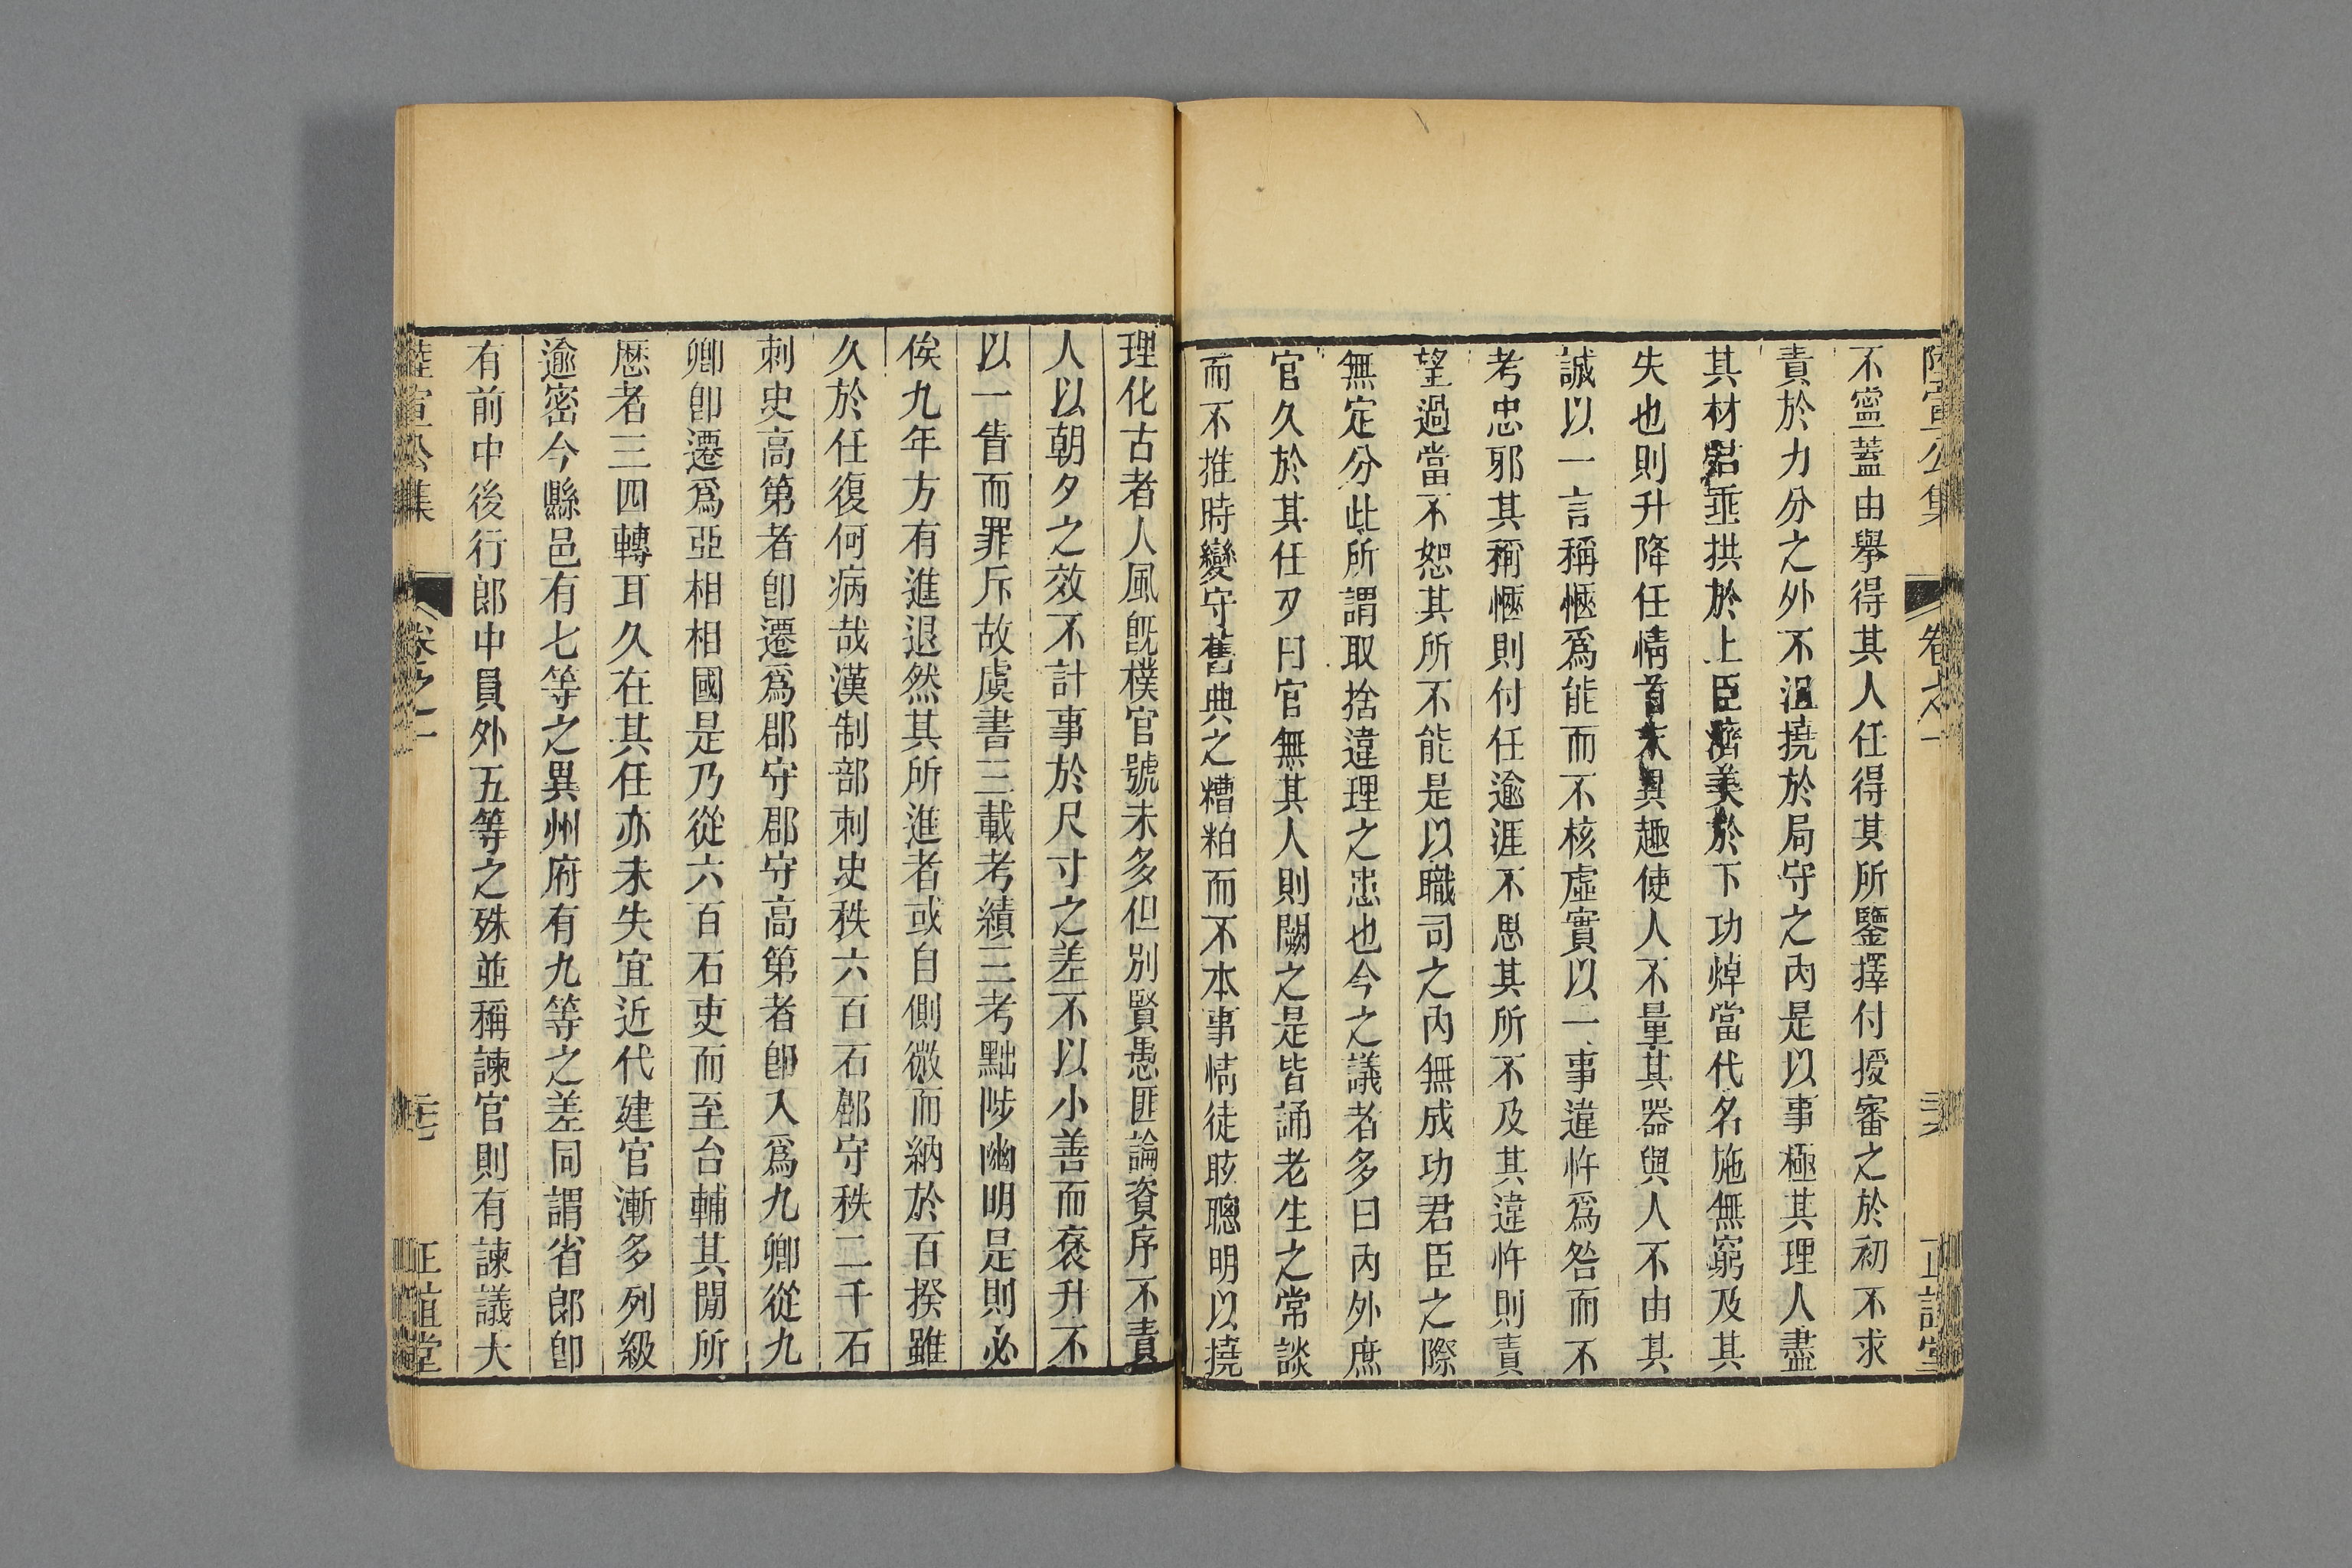 陸宣公集 卷之一 三六 正誼堂
不寍蓋由舉得其人任得其所鑒擇付授審之於初不求
責於力分之外不沮撓於局守之內是以事極其理人盡
其材君垂拱於上臣濟美於下功焯當代名施無窮及其
失也則升降任情首末異趣使人不量其器與人不由其
誠以一言稱愜爲能而不核虛實以一事違忤爲咎而不
考忠邪其稱愜則付任逾涯不思其所不及其違忤則責
望過當不恕其所不能是以職司之內無成功君臣之際
無定分此所謂取捨違理之患也今之議者多曰內外庶
官久於其任又曰官無其人則闕之是皆誦老生之常談
而不推時變守舊典之糟粕而不本事情徒眩聰明以撓
理化古者人風旣樸官號未多但別賢愚匪論資序不責
人以朝夕之效不計事於尺寸之差不以小善而褒升不
以一眚而罪斥故虞書三載考績三考黜陟幽明是則必
俟九年方有進退然其所進者或自側微而納於百揆雖
久於任復何病哉漢制部刺史秩六百石郡守秩二千石
刺史高第者卽遷爲郡守郡守高第者卽入爲九卿從九
卿卽遷爲亞相相國是乃從六百石吏而至台輔其閒所
歷者三四轉耳久在其任亦未失宜近代建官漸多列級
逾密今縣邑有七等之異州府有九等之差同謂省郎卽
有前中後行郎中員外五等之殊並稱諫官則有諫議大
陸宣公集 卷之一 三七 正誼堂